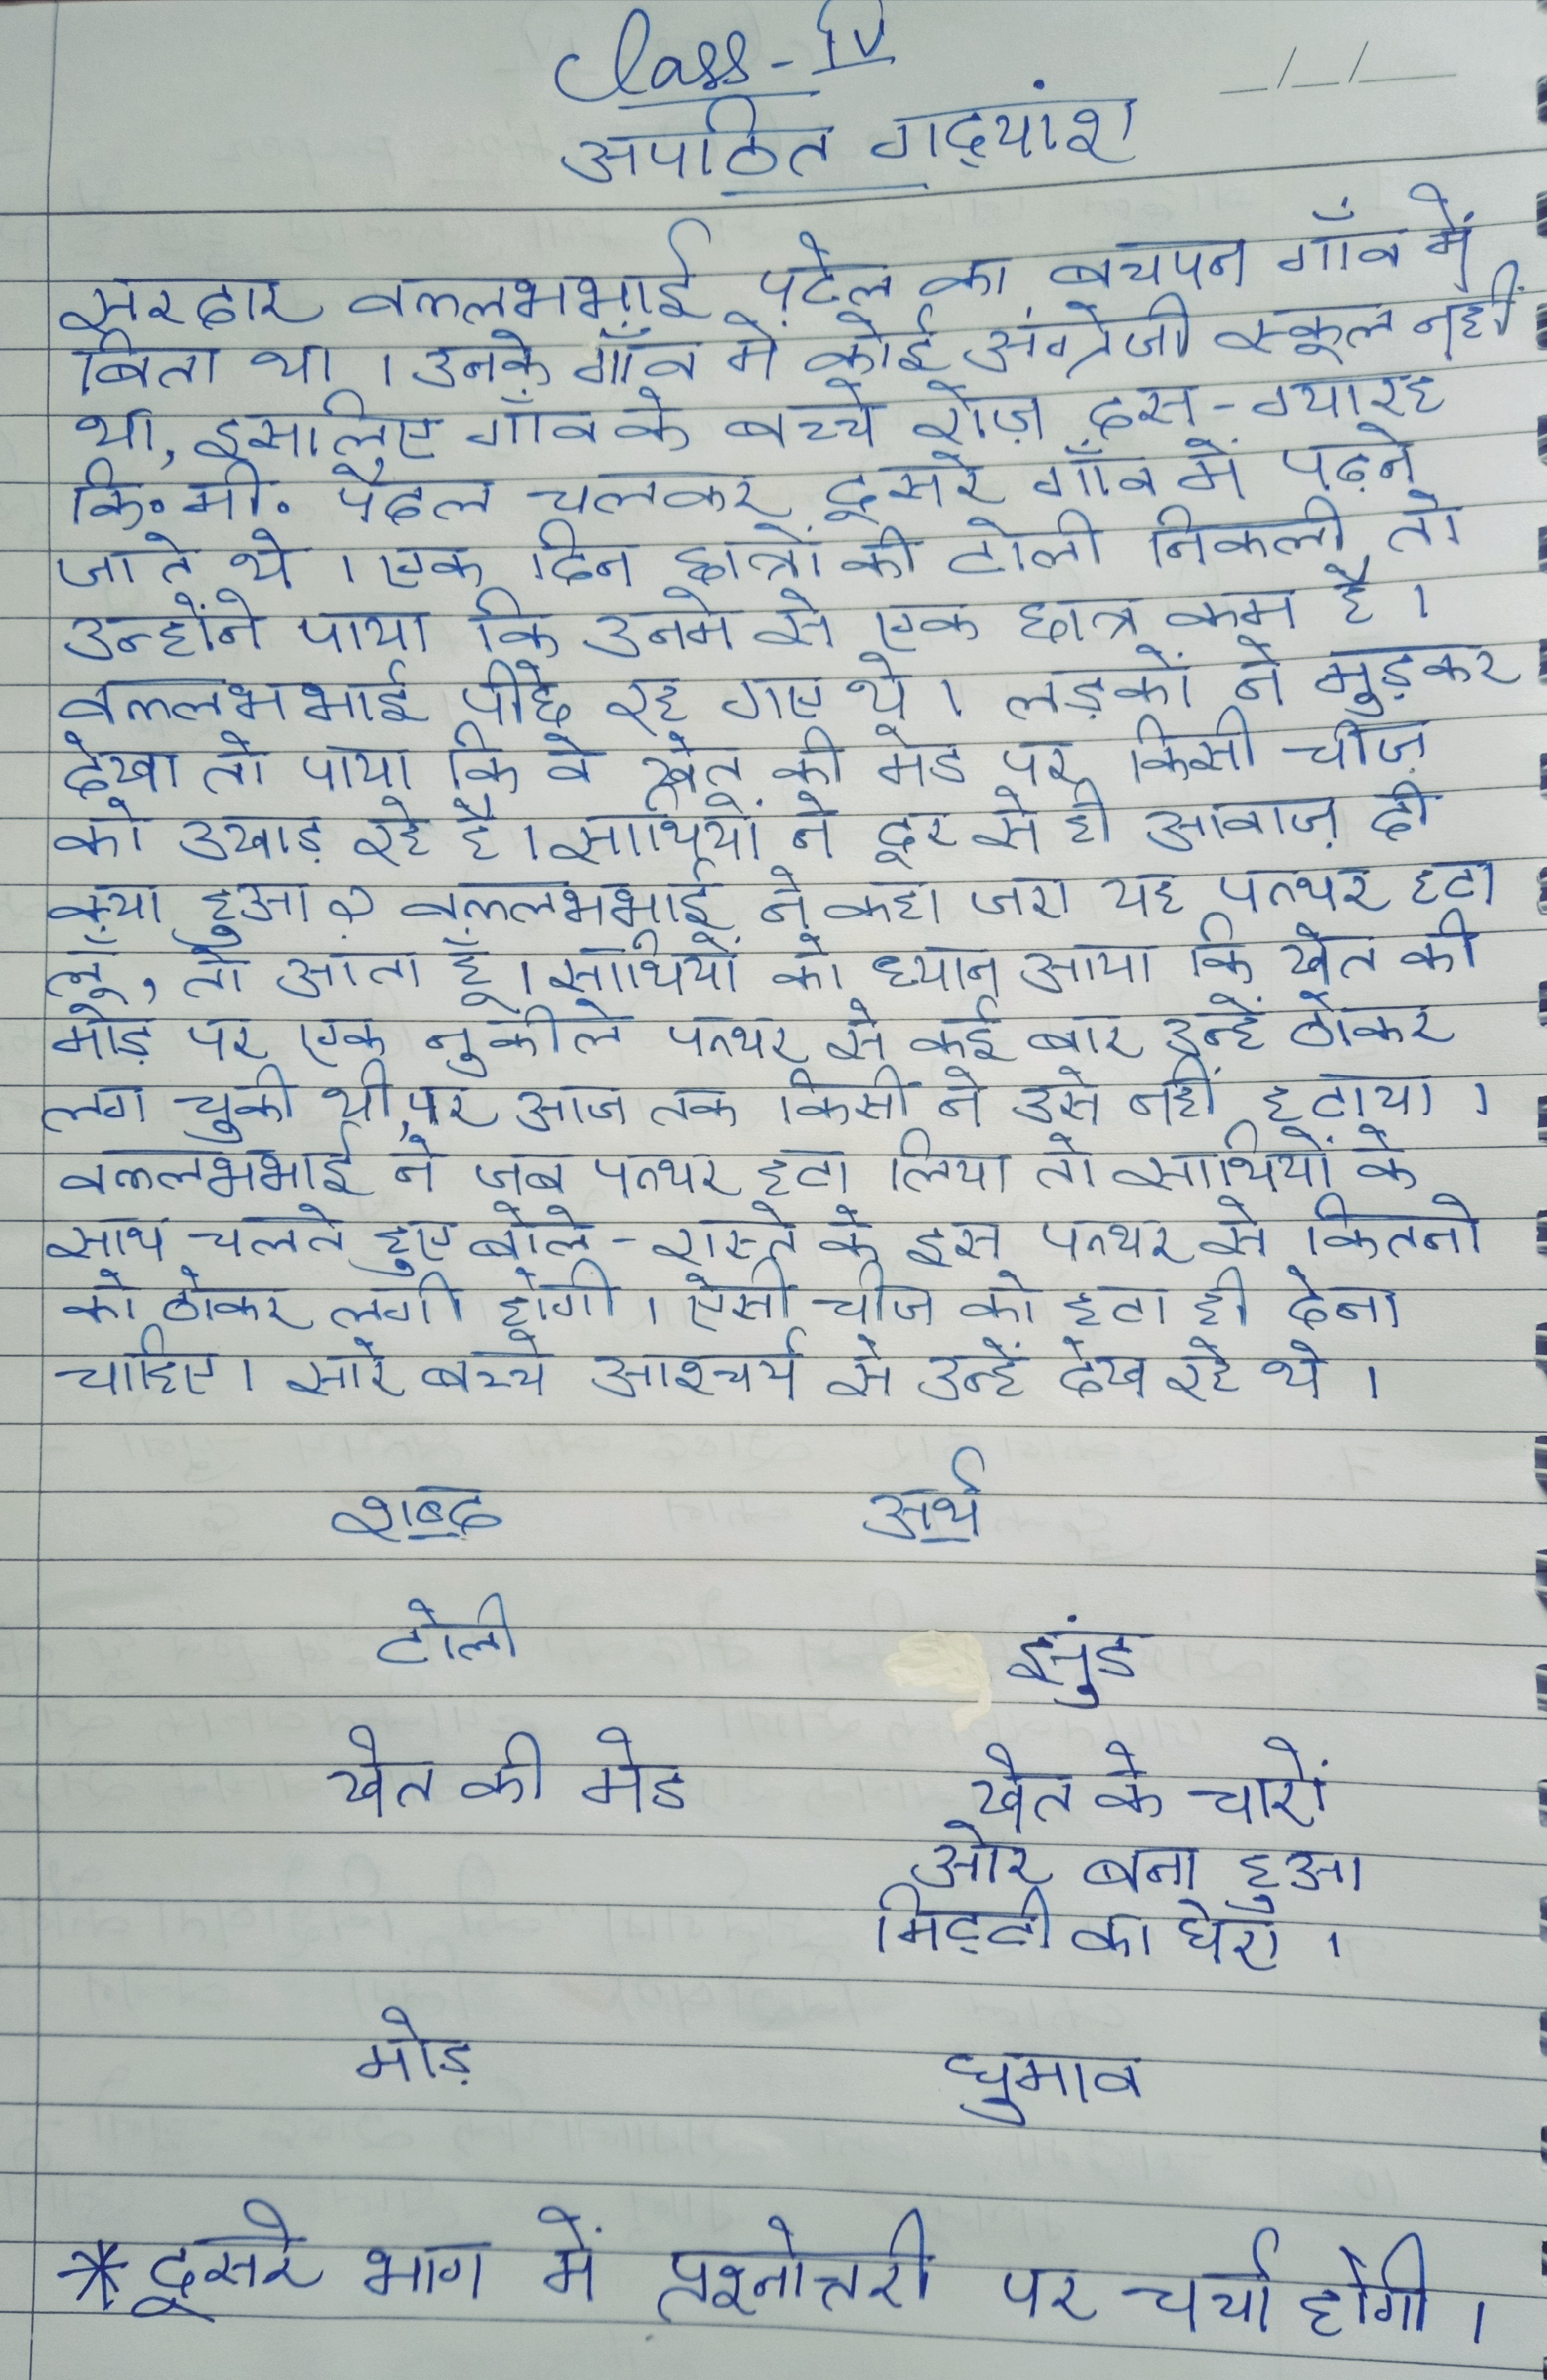 Class - IV
अपठित गद्यांश
सरदार वल्लभभाई पटेल का बचपन गाँव में
बिता था । उनके गाँव मे कोई अंग्रेजी स्कूल नहीं
था, इसलिए गाँव के बच्चे रोज़ दस - ग्यारह
कि॰ मी॰ पैदल चलकर दूसरे गाँव में पढ़ने
जाते थे । एक दिन छात्रों की टोली निकली तो
उन्होंने पाया कि उनमे से एक छात्र कम है ।
वल्लभभाई पीछे रह गए थे । लड़कों ने मुड़कर
देखा तो पाया कि वे खेत की मेड पर किसी चीज़
को उखाड़ रहे है । साथियों ने दूर से ही आवाज़ दी
क्या हुआ ? वल्लभभाई ने कहा जरा यह पत्थर हटा
लूँ, तो आता हूँ । साथियों को ध्यान आया कि खेत की
मोड़ पर एक नुकीले पत्थर से कई बार उन्हें ठोकर
लग चुकी थी, पर आज तक किसी ने उसे नहीं हटाया ।
वल्लभभाई ने जब पत्थर हटा लिया तो साथियों के
साथ चलते हुए बोले - रास्ते के इस पत्थर से कितनो
को ठोकर लगी होगी । ऐसी चीज को हटा ही देना
चाहिए । सारे बच्चे आश्चर्य से उन्हें देख रहे थे ।
शब्द अर्थ
टोली झुंड
खेत की मेड खेत के चारों
ओर बना हुआ
मिट्टी का घेरा ।
मोड़ घुमाव
* दूसरे भाग में प्रश्नोत्तरी पर चर्चा होगी ।